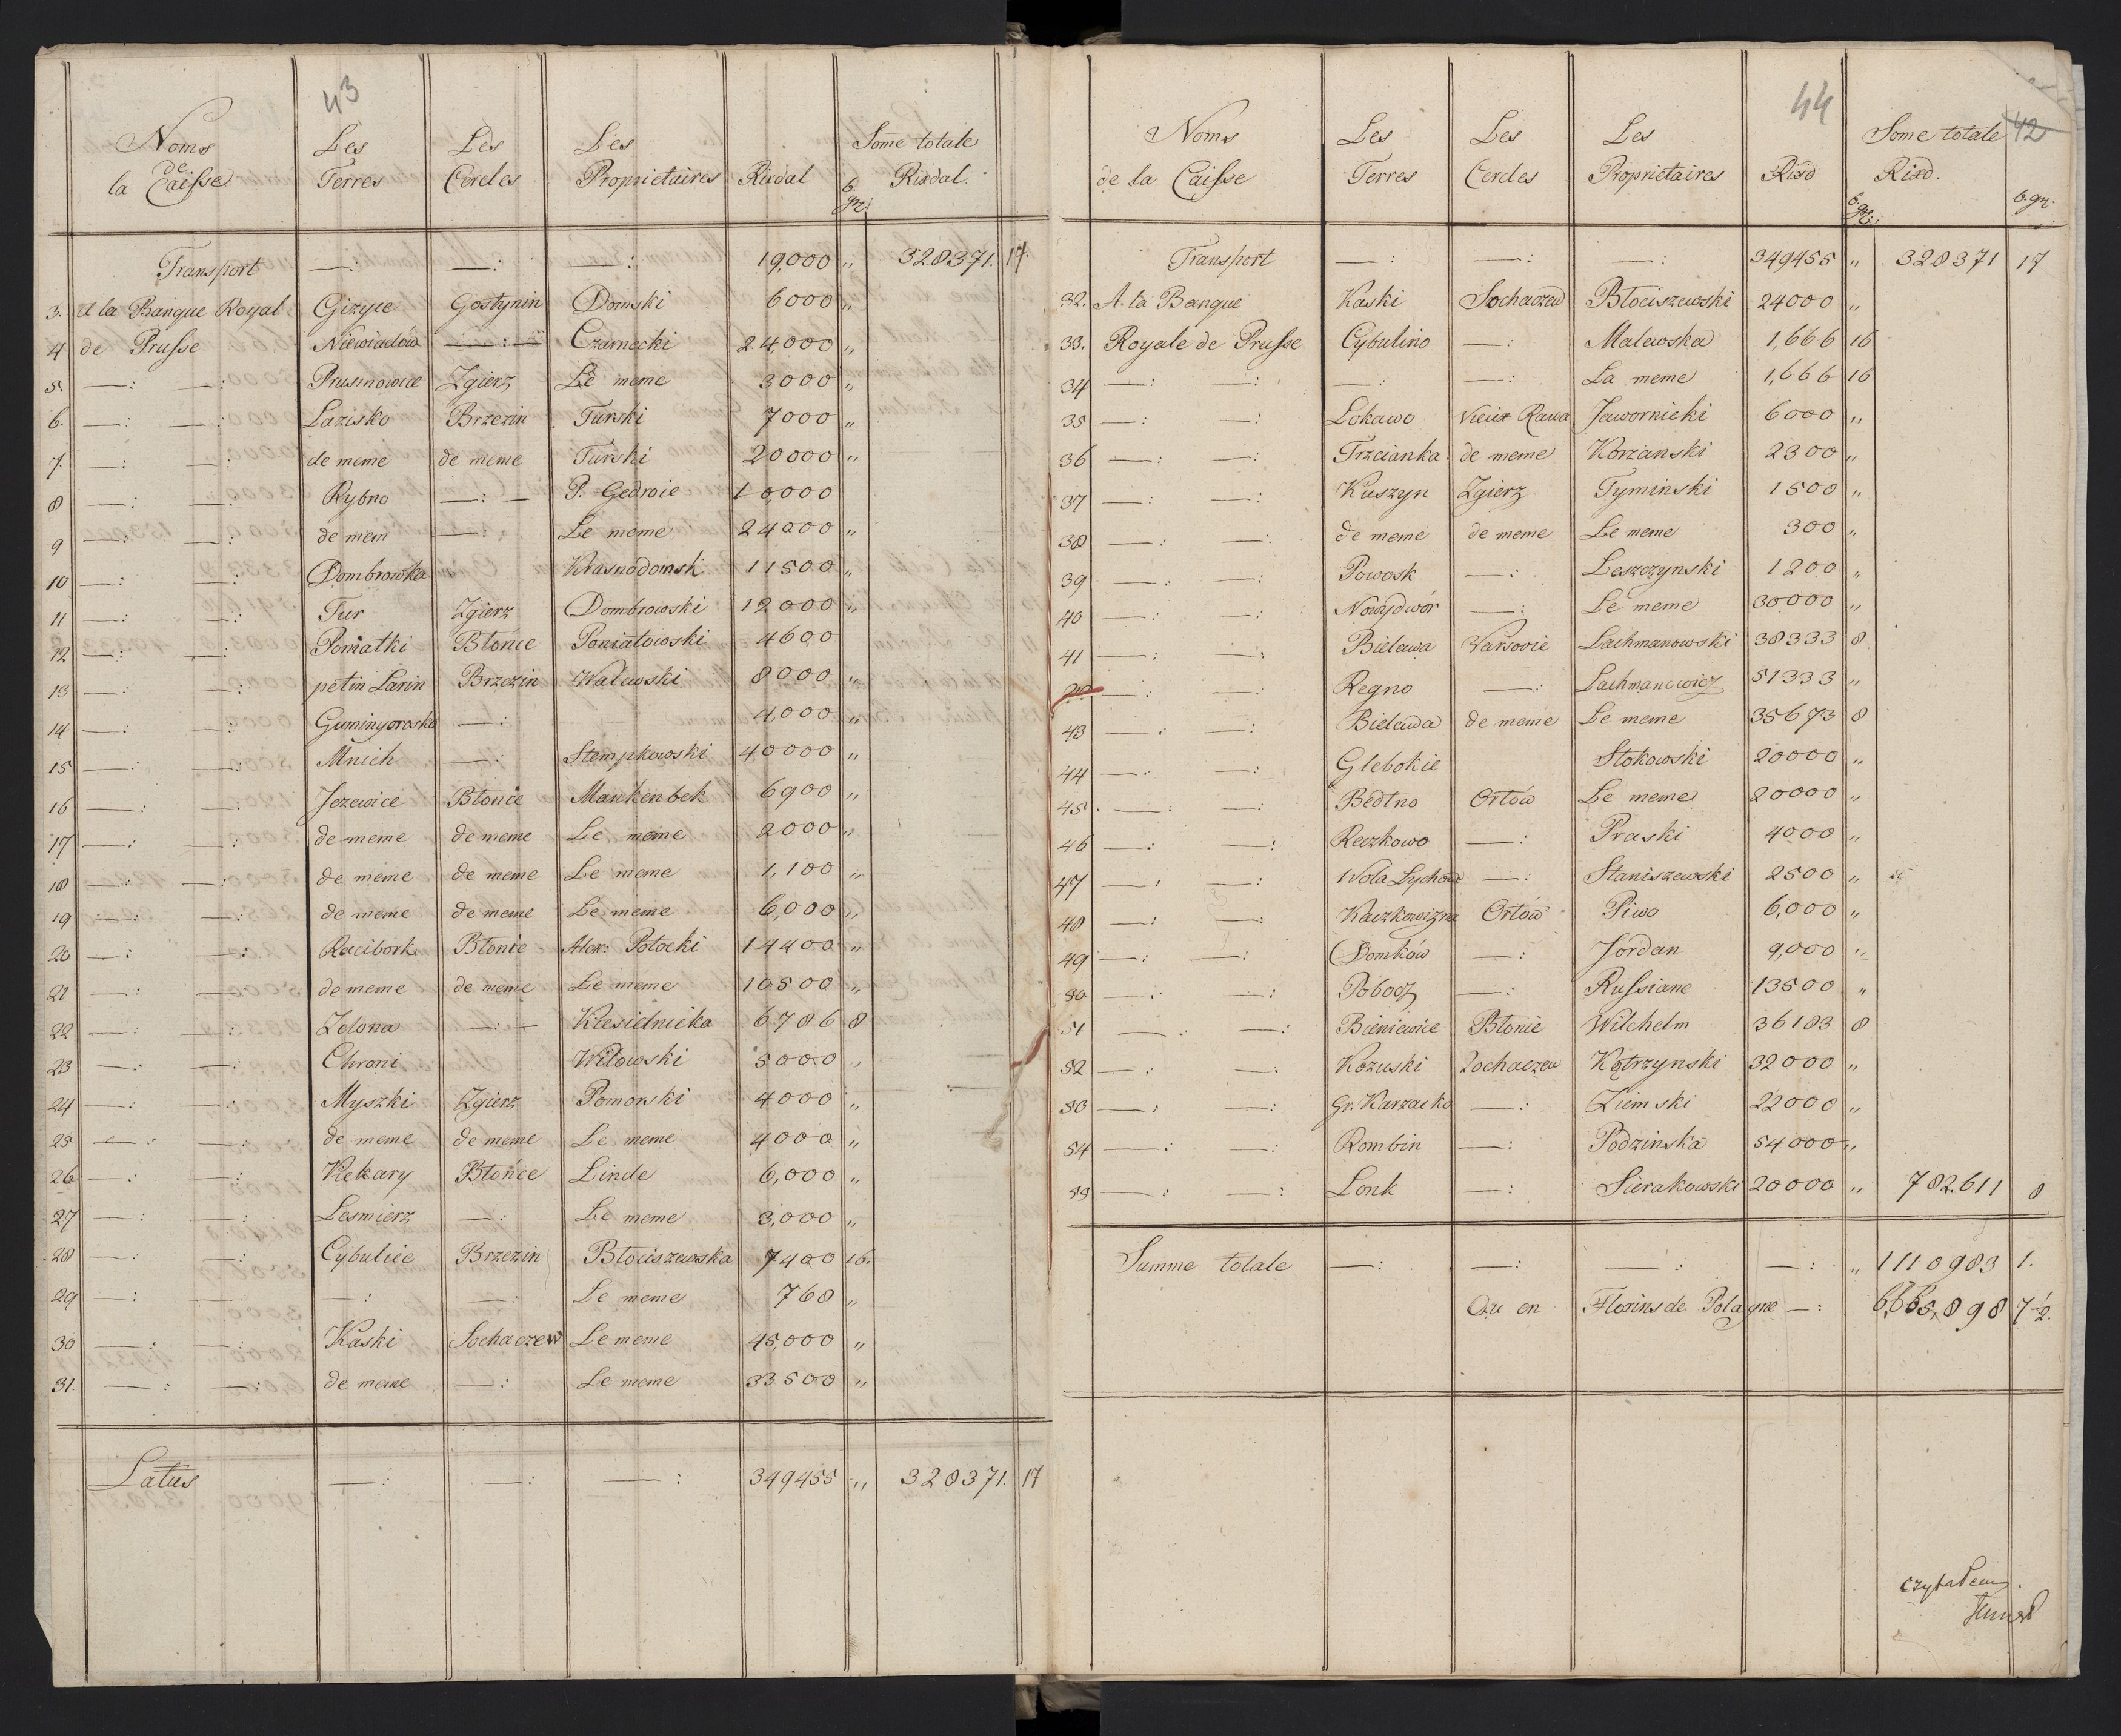 43
Noms de la Caisse Les Terres Les Cercles Les Proprietaires Rixdal b. gr. Some totale Rixdal.
Transport —: —: —: 19,000 „ 328371. 17.
3. a la Banque Royal Gizyce Gostynin Domski 6000 „
4 de Prusse Niewiadów —:— Czarnecki 24,000 „
5. —: —: Prusinowice Zgierz Le meme 3000 „
6. —: —: Lazisko Brzezin Turski 7000 „
7. —: —: de meme de meme Turski 20000 „
8 —: —: Rybno —:— P. Gedroie 10000
9 —: —: de mem —: Le meme 24000 „
10 —: —: Dombrowka Krasnodomsk 11500 „
11 —: —: Tur Zgierz Dombrowski 12000 „
12 —: —: Pomatki Błonie Poniatowski 4600
13 —: —: petin Larin Brzezin Walewski 8000 „
14 —: —: —: 4,000 „
15 —: —: Mnich —: Stempkowski 40000 „
16 —: —: Jezewice Błonie Mankenbek 6900 „
17 —: —: de meme de meme Le meme 2000 „
18 —: —: de meme de meme Le meme 1,100 „
19 —: —: de meme de meme Le meme 6,000 „
20 —: —: Racibork Błonie Alex: Potocki 14400 „
21 —: —: de meme de meme Le meme 10500 „
22 —: —: Zelona —:— Kłesielnicka 6786 8
23 —: —: Chroni Witowski 5000 „
24 —: —: Myszki Zgierz Pomorski 4000 „
25 —: —: de meme de meme Le meme 4000 „
26 —: —: Kekary Błonce Linde 6,000 „
27 —: —: Lesmierz —: Le meme 3,000 „
28 —: —: Cybulice Brzezin Błociszewska 7400 16.
29 —: —: —: —: Le meme 768 „
30 —: —: Kaski Sochaczew Le meme 45,000 „
31. —: —: de meme —: Le meme 33500 „
Latus —: —: —: 349455 „ 328371. 17
44
42
Noms de la Caisse Les Terres Les Cercles Les Proprietaires Rixd b. gr. Some totale Rixd. b. gr.
Transport —: —: —: 349455 „ 328371 17
32. A. la Banque Kaski Sochaczew Błociszewski 24000 „
33. Royale de Prusse Cybulino —: Malewska 1,666 16
34 —: —: —: —: La meme 1,666 16
35 —: —: Lokawo Vieux Rawa Jawornicki 6000 „
36 —: —: Trzcianka de meme Korzanski 2300 „
37 —: —: Kuszyn Zgierz Tyminski 1500 „
38 —: —: de meme de meme Le meme 300 „
39 —: —: Powosk —: Leszczynski 1200 „
40 —: —: Nowydwór —: Le meme 30000 „
41 —: —: Bielawa Varsovie Lachmanowski 38333 8
—: —: Regno —: Lachmanowicz 51333 „
43 —: —: Bielawa de meme Le meme 35673 8
44 —: —: Glebokie Stokowski 20000 „
45. —: —: Bedlno Orłów Le meme 20000 „
46 —: —: Reczkowo —: Praski 4000 „
47 —: —: Wola Lychow —: Staniszewski 2500 „
48 —: —: Kaczkowizna Orłów Piwo 6,000 „
49 —: —: Domków —: Jordan 9,000 „
50 —: —: Poborz —: Russiane 13500 „
51 —: —: Bieniewice Błonie Wilchelm 36183 8
52 —: —: Kozuski Sochaczew Kętrzynski 32000 „
53 —: —: Gr. Karzacko —: Ziemski 22000 „
54 —: —: Rombin —: Podzinska 54000 „
55 —: —: Lonk —: Sierakowski 20000 „ 782.611 8
Summe totale —: —: —: —: „ 1110983 1.
Ou en Florins de Pologne —: 6,665,898 7½.
czytałem